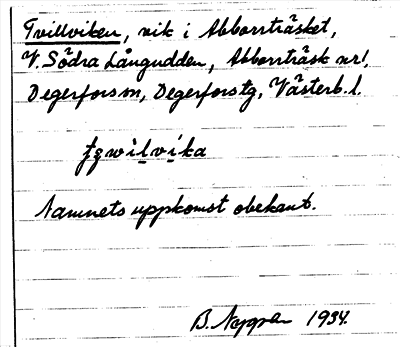 Tvillviken, vik i Abborrträsket,
V. Södra Långudden, Abborrträsk nr1,
Degerfors sn, Degerfors tg, Västerb. l.
Namnets uppkomst obekant.
B. Nygren 1934.